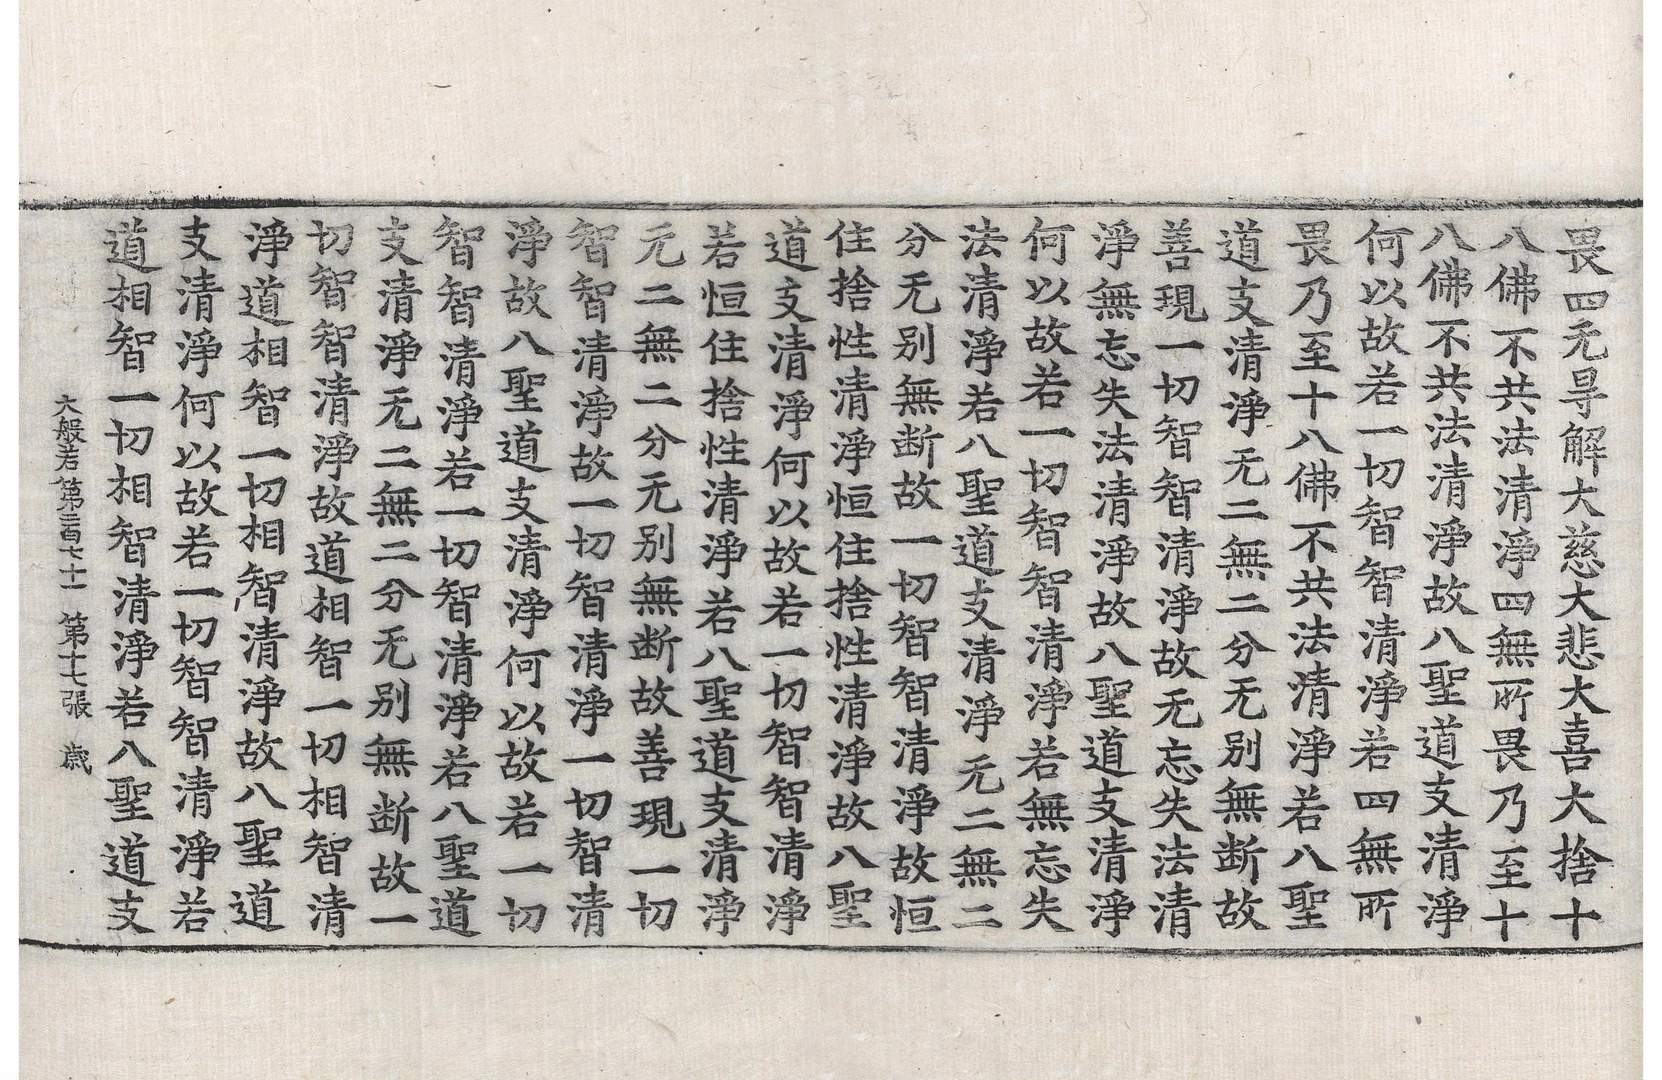 畏四无㝵解大慈大悲大喜大捨十
八佛不共法清淨四無所畏乃至十
八佛不共法清淨故八聖道支清淨
何以故若一切智智清淨若四無所
畏乃至十八佛不共法清淨若八聖
道支清淨无二無二分无别無断故
善現一切智智清淨故无忘失法清
淨無忘失法清淨故八聖道支清淨
何以故若一切智智清淨若無忘失
法清淨若八聖道支清淨无二無二
分无别無断故一切智智清淨故恒
住捨性清淨恒住捨性清淨故八聖
道支清淨何以故若一切智智清淨
若恒住捨性清淨若八聖道支清淨
无二無二分无别無断故善現一切
智智清淨故一切智清淨一切智清
淨故八聖道支清淨何以故若一切
智智清淨若一切智清淨若八聖道
支清淨无二無二分无别無断故一
切智智清淨故道相智一切相智清
淨道相智一切相智清淨故八聖道
支清淨何以故若一切智智清淨若
道相智一切相智清淨若八聖道支
大般若第二百七十一 第十七張 歲